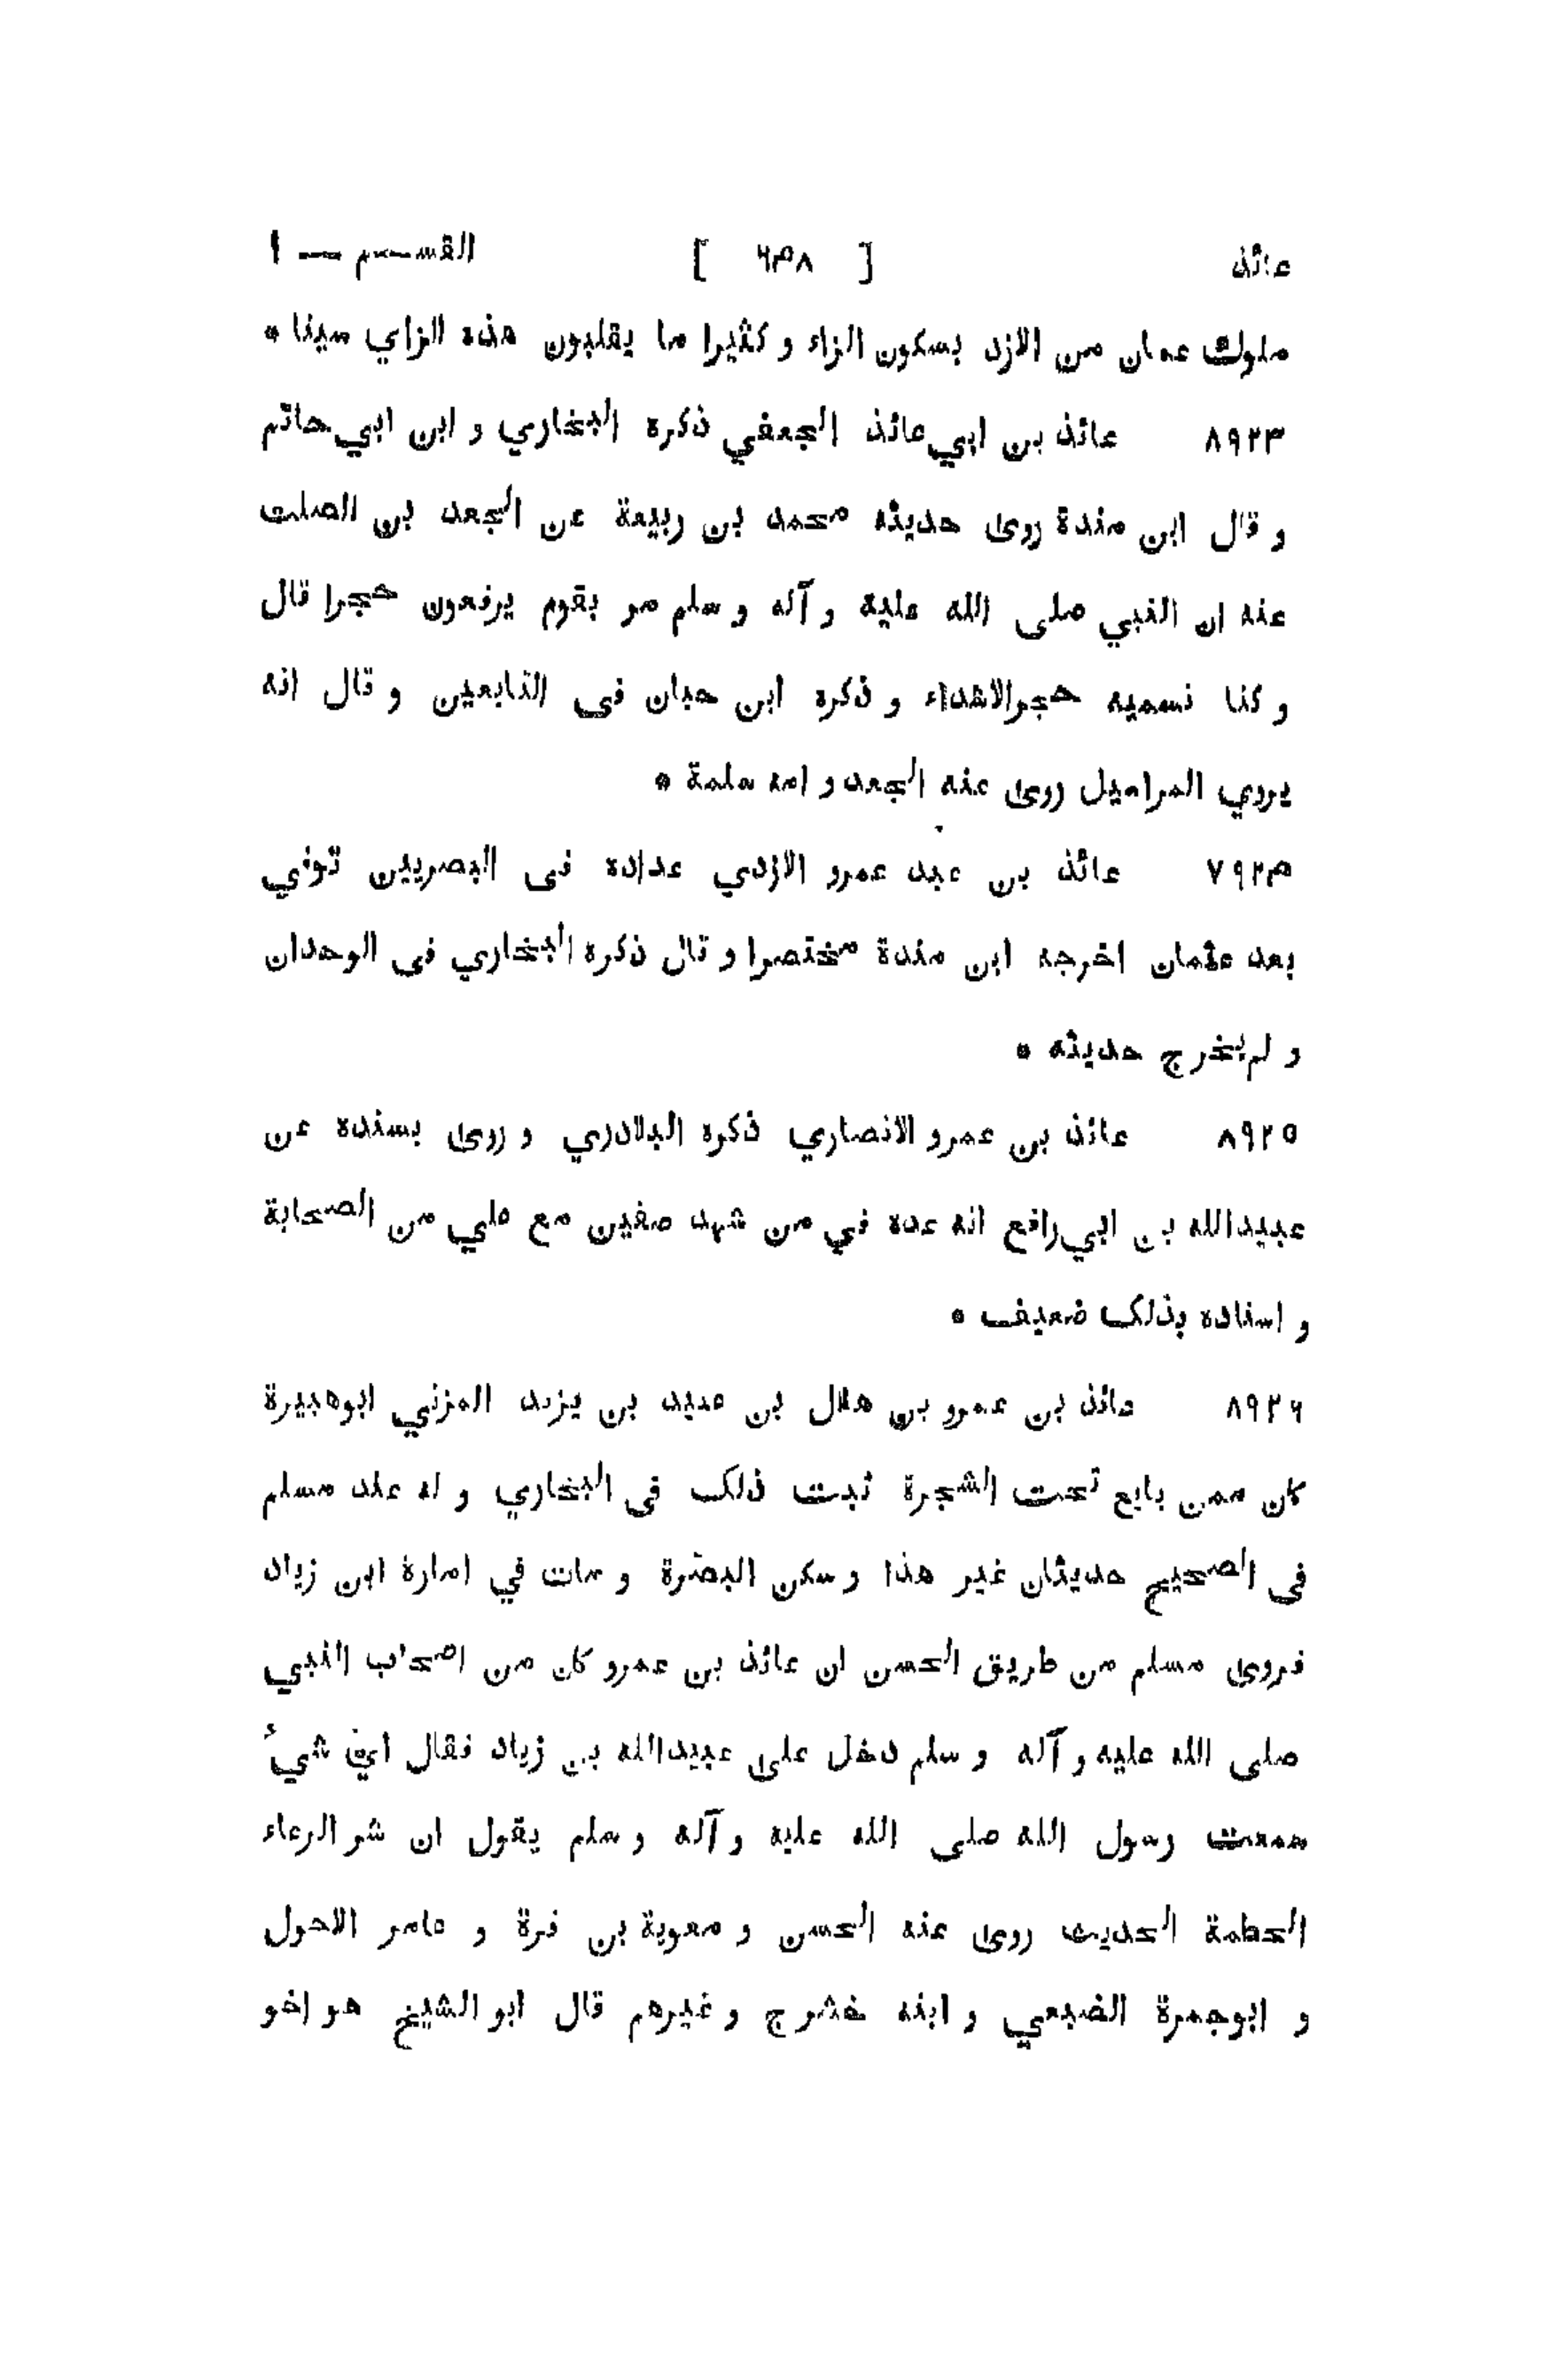 عائذ [ ٦٤٨ ] القسـم — ١
ملوك عمان من الازد بسكون الزاء و كثيرا ما يقلبون هذه الزاي سينا *
٨٩٢٣ عائذ بن ابي عائذ الجعفي ذكره البخاري و ابن ابي حاتم
و قال ابن مندة روى حديثه محمد بن ربيعة عن الجعد بن الصلت
عنه ان النبي صلى الله عليه و آله و سلم مر بقوم يرفعون حجرا قال
و كنا نسميه حجر الاشداء و ذكره ابن حبان فى التابعين و قال انه
يروي المراسيل روى عنه الجعد و امه سلمة *
٧٩٢٤ عائذ بن عبد عمرو الازدي عداده فى البصريين توفي
بعد عثمان اخرجه ابن مندة مختصرا و قال ذكره البخاري فى الوحدان
و لم يخرج حديثه *
٨٩٢٥ عائذ بن عمرو الانصاري ذكره البلادري و روى بسنده عن
عبيدالله بن ابي رافع انه عده في من شهد صفين مع علي من الصحابة
و اسناده بذلك ضعيف *
٨٩٢٦ عائذ بن عمرو بن هلال بن عبيد بن يزيد المزني ابوهبيرة
كان ممن بايع تحت الشجرة ثبت ذلك فى البخاري و له عند مسلم
فى الصحيح حديثان غير هذا و سكن البصرة و مات في امارة ابن زياد
فروى مسلم من طريق الحسن ان عائذ بن عمرو كان من اصحاب النبي
صلى الله عليه و آله و سلم دخل على عبيدالله بن زياد فقال اي شيء
سمعت رسول الله صلى الله عليه و آله و سلم يقول ان شر الرعاء
الحطمة الحديث روى عنه الحسن و معوية بن قرة و عامر الاحول
و ابوجمرة الضبعي و ابنه خشرج و غيرهم قال ابو الشيخ هو اخو